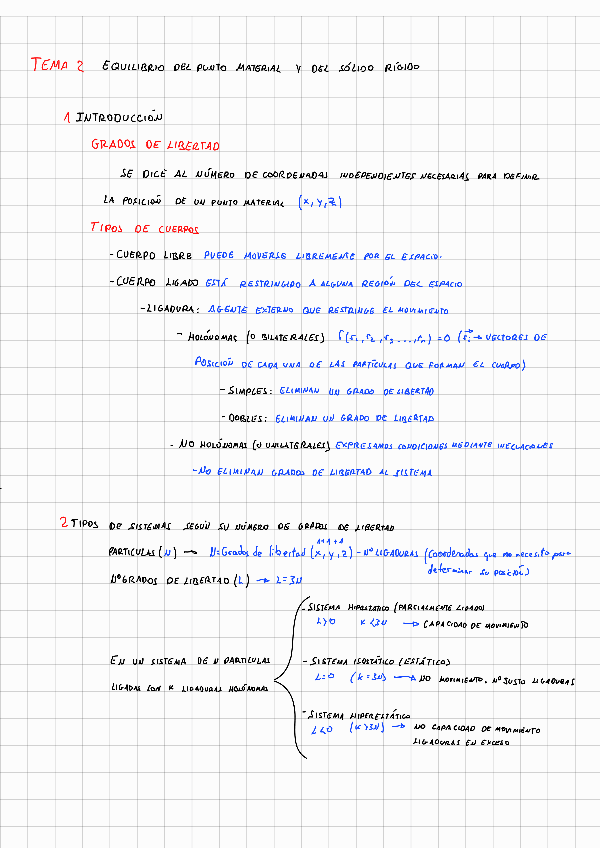 TEMA 2 EQUILIBRIO DEL PUNTO MATERIAL Y DEL SÓLIDO RÍGIDO
1 INTRODUCCIÓN
GRADOS DE LIBERTAD
SE DICE AL NÚMERO DE COORDENADAS INDEPENDIENTES NECESARIAS PARA DEFINIR
LA POSICIÓN DE UN PUNTO MATERIAL (x, y, z)
TIPOS DE CUERPOS
- CUERPO LIBRE PUEDE MOVERSE LIBREMENTE POR EL ESPACIO.
- CUERPO LIGADO ESTÁ RESTRINGIDO A ALGUNA REGIÓN DEL ESPACIO
- LIGADURA: AGENTE EXTERNO QUE RESTRINGE EL MOVIMIENTO
- HOLÓNOMAS (O BILATERALES) f(r₁, r₂, r₃ ..., rₙ) = 0 (r⃗ᵢ → VECTORES DE
POSICIÓN DE CADA UNA DE LAS PARTÍCULAS QUE FORMAN EL CUERPO)
- SIMPLES: ELIMINAN UN GRADO DE LIBERTAD
- DOBLES: ELIMINAN UN GRADO DE LIBERTAD
- NO HOLÓNOMAS (O UNILATERALES) EXPRESAMOS CONDICIONES MEDIANTE INECUACIONES
- NO ELIMINAN GRADOS DE LIBERTAD AL SISTEMA
2 TIPOS DE SISTEMAS SEGÚN SU NÚMERO DE GRADOS DE LIBERTAD
1+1+1
PARTICULAS (N) → N=Grados de libertad (x, y, z) - Nº LIGADURAS (Coordenadas que no necesito para
determinar su posición)
Nº GRADOS DE LIBERTAD (L) → L=3N
EN UN SISTEMA DE N PARTICULAS
LIGADAS CON K LIGADURAS HOLÓNOMAS
- SISTEMA HIPOSTÁTICO (PARCIALMENTE LIGADO)
L>0 K<3N → CAPACIDAD DE MOVIMIENTO
- SISTEMA ISOSTÁTICO (ESTÁTICO)
L=0 (K=3N) → NO MOVIMIENTO. Nº JUSTO LIGADURAS
- SISTEMA HIPERESTÁTICO
L<0 (K>3N) → NO CAPACIDAD DE MOVIMIENTO
LIGADURAS EN EXCESO